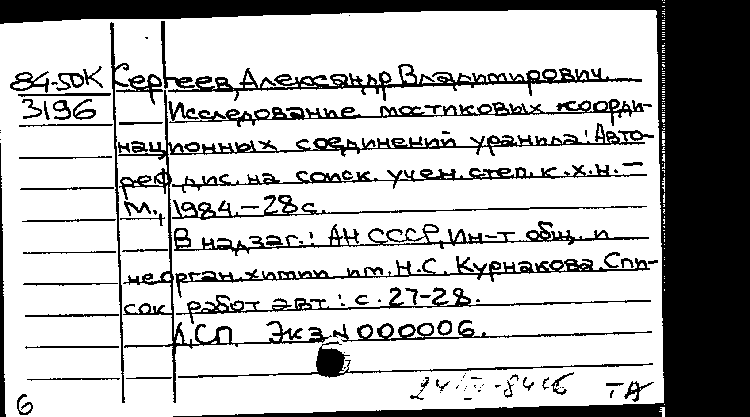 84-5DK Сергеев, Александр Владимирович.
3196 Исследование мостиковых коорди-
национных соединений уранила: Авто-
реф. дис. на соиск. учен. степ. к.х.н. –
М., 1984. – 28 с.
В надзаг.: АН СССР, Ин-т общ. и
неорган. химии им. Н.С. Курнакова. Спи-
сок работ авт.: с. 27-28.
ДСП Экз N 000006.
ТА
6